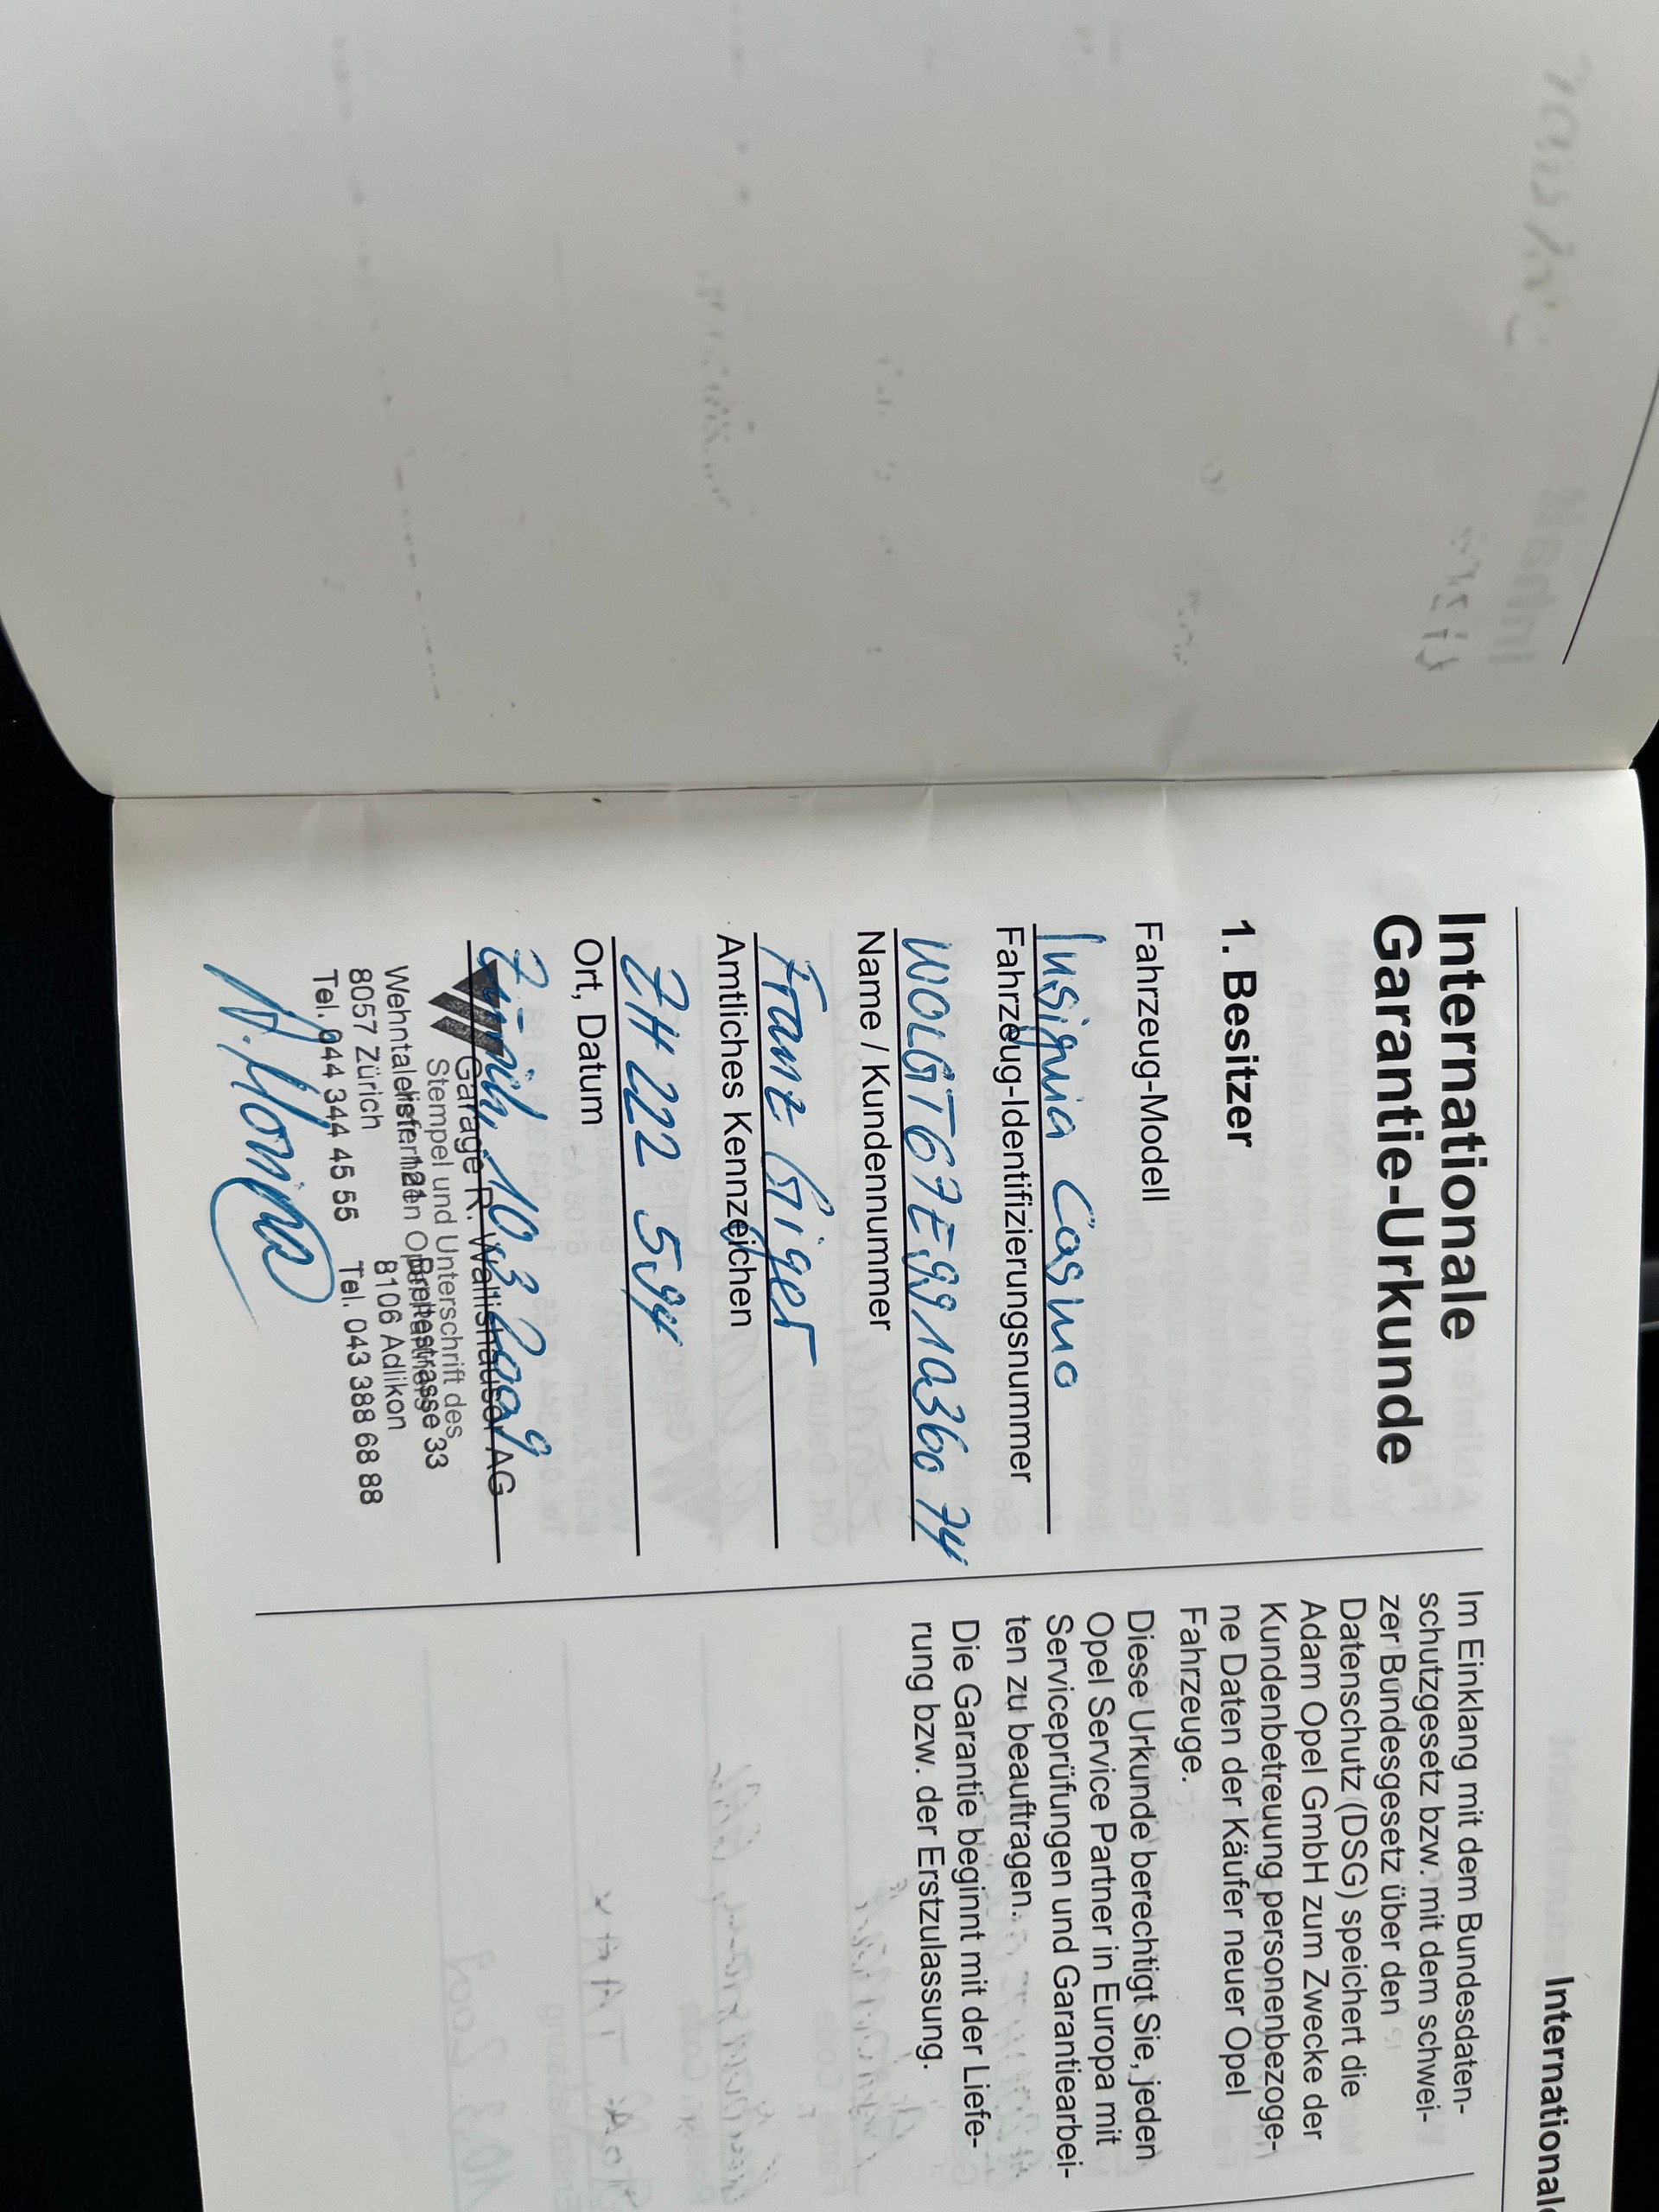 Internationale
Garantie-Urkunde
1. Besitzer
Fahrzeug-Modell
Insignia Cosmo
Fahrzeug-Identifizierungsnummer
W0LGT67E991036074
Name / Kundennummer
Franz Giger
Amtliches Kennzeichen
ZH 222 594
Ort, Datum
Zürich, 10.3.2009
Garage R. Wallishauser AG
Stempel und Unterschrift des
ausliefernden Opel Partners
Breitestrasse 33
8057 Zürich
8106 Adlikon
Tel. 044 344 45 55
Tel. 043 388 68 88
Im Einklang mit dem Bundesdaten-
schutzgesetz bzw. mit dem schwei-
zer Bundesgesetz über den
Datenschutz (DSG) speichert die
Adam Opel GmbH zum Zwecke der
Kundenbetreuung personenbezoge-
ne Daten der Käufer neuer Opel
Fahrzeuge.
Diese Urkunde berechtigt Sie, jeden
Opel Service Partner in Europa mit
Serviceprüfungen und Garantiearbei-
ten zu beauftragen.
Die Garantie beginnt mit der Liefe-
rung bzw. der Erstzulassung.
International